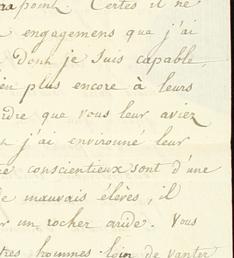 point. Certes il ne
engagemens que j'ai
dont je suis capable,
en plus encore à leurs
rdre que vous leur aviez
j'ai environné leur
conscientieux sont d'une
de mauvais élèves, il
r un rocher aride. Vous
tres hommes loin de vanter